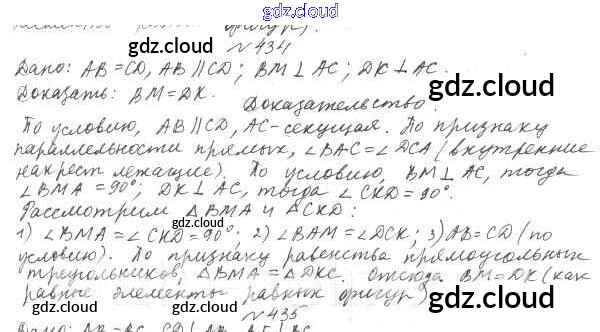 gdz.cloud
элементы равных фигур).
gdz.cloud
N 434
Дано: AB = CD, AB || CD; BM ⊥ AC; DK ⊥ AC.
gdz.cloud
Доказать: BM = DK.
Доказательство:
По условию, AB || CD, AC - секущая. По признаку
gdz.cloud
параллельности прямых, ∠BAC = ∠DCA (внутренние
накрест лежащие). По условию, BM ⊥ AC, тогда
∠BMA = 90°; DK ⊥ AC, тогда ∠CKD = 90°.
gdz.cloud
Рассмотрим △BMA и △CKD:
gdz.cloud
1) ∠BMA = ∠CKD = 90°; 2) ∠BAM = ∠DCK; 3) AB = CD (по
условию). По признаку равенства прямоугольных
треугольников, △BMA = △DKC. Отсюда BM = DK (как
gdz.cloud
gdz.cloud
равные элементы равных фигур)
N 435
gdz.cloud
gdz.cloud
Дано: AB = AC, CD